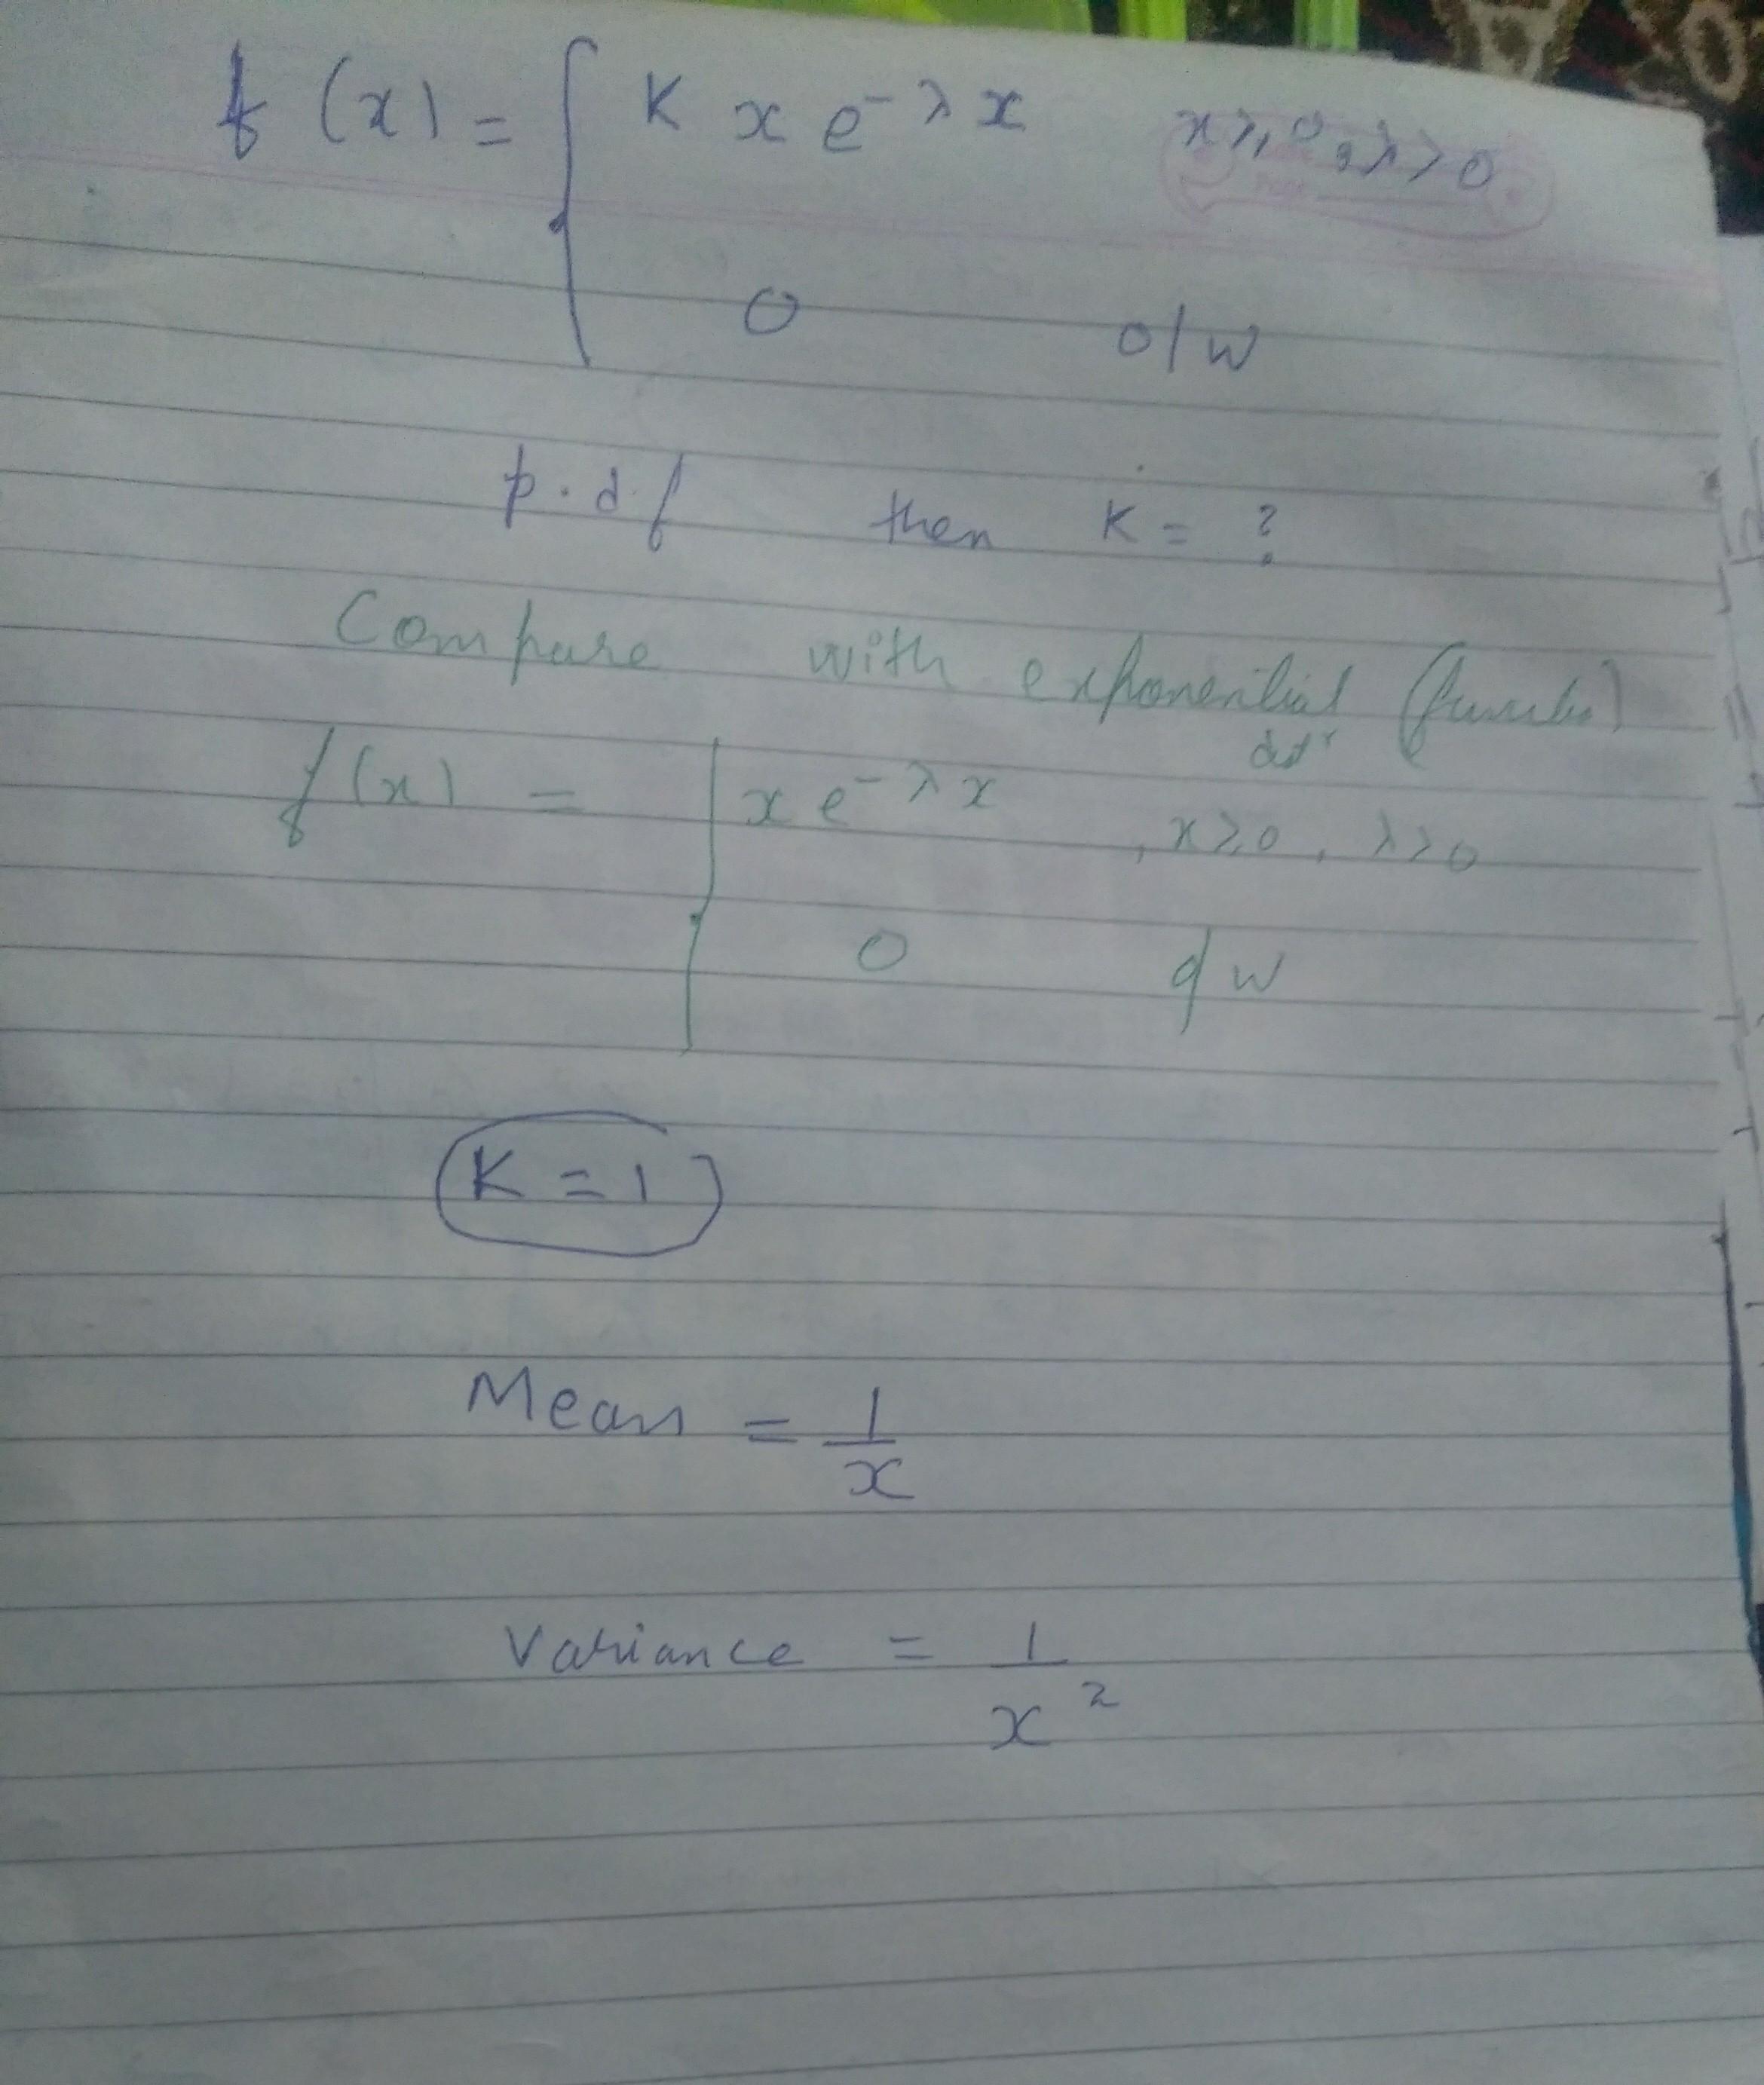 f (x) = { K x e^{-λx} x ≥ 0, λ > 0
0 o/w
p.d.f then K = ?
Compare with exponential dist^r
f(x) = { x e^{-λx}, x ≥ 0, λ > 0
0 o/w
K = 1
Mean = 1/x
Variance = 1/x²